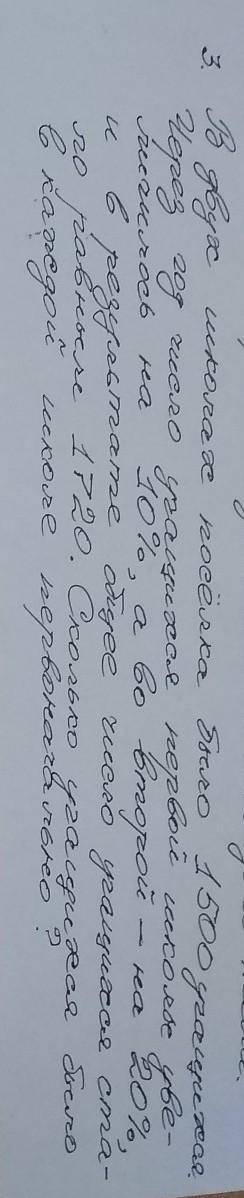 3. В двух школах посёлка было 1500 учащихся.
Через год число учащихся первой школы уве-
личилось на 10%, а во второй – на 20%,
и в результате общее число учащихся ста-
ло равным 1720. Сколько учащихся было
в каждой школе первоначально?